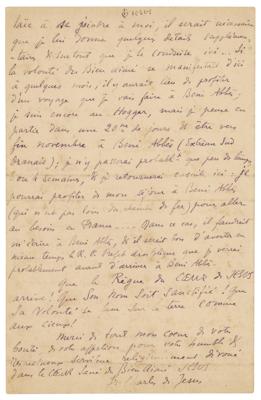 laïc à se joindre à moi, il serait nécessaire
que je lui donne quelques détails supplémen-
taires & surtout que je le conduise ici. Si
la volonté du Bien aimé se manifestait d'ici
à quelques mois, il y aurait lieu de profiter
d'un voyage que je vais faire à Beni Abbès;
je suis encore au Hoggar, mais je pense en
partir dans une 20ne de jours & être vers
fin novembre à Beni Abbès (Extrême Sud
Oranais); je n'y passerai probablt que peu de temps,
ou 4 semaines, & je retournerai ensuite ici. Je
pourrai profiter de mon séjour à Beni Abbès
(qui n'est pas loin du chemin de fer) pour aller
au besoin en France.... Dans ce cas, il faudrait
m'écrire à Beni Abbès, & il serait bon d'avertir en
même temps le R. P. Préfet Apostolique que je verrai
probablement avant d'arriver à Beni Abbès.
Que le Règne du CŒUR de JESUS
arrive! Que Son Nom Soit Sanctifié! Que
Sa Volonté se fasse sur la terre comme
aux cieux!
Merci de tout mon cœur de votre
bonté, de votre affection pour votre humble &
serviteur religieusement dévoué
dans le CŒUR Sacré du Bien aimé JESUS
fr. Charles de Jésus